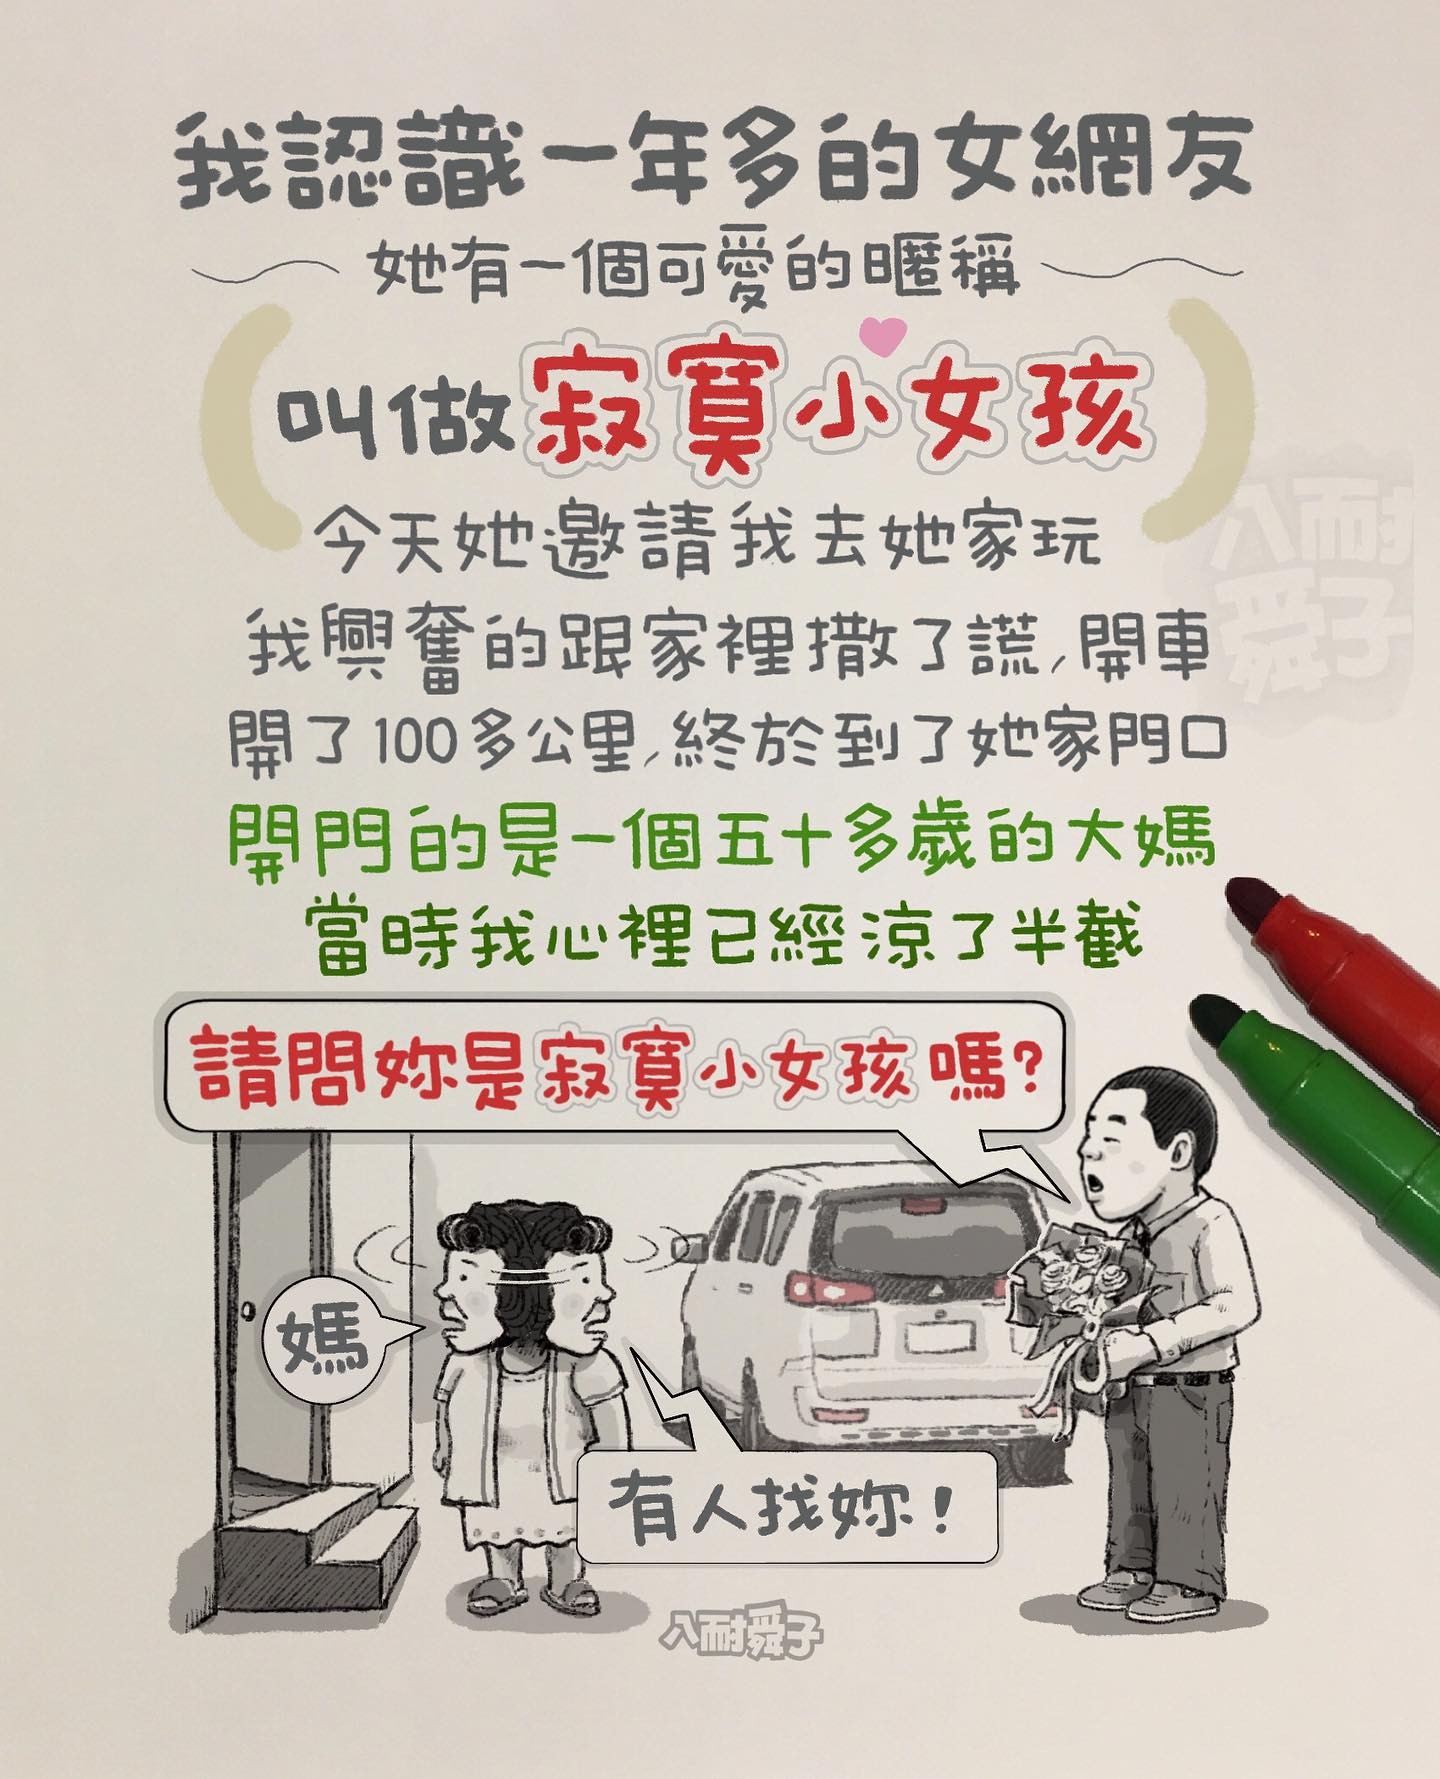 我認識一年多的女網友
她有一個可愛的暱稱
叫做寂寞小女孩
今天她邀請我去她家玩
我興奮的跟家裡撒了謊,開車
開了100多公里,終於到了她家門口
開門的是一個五十多歲的大媽
當時我心裡已經涼了半截
請問妳是寂寞小女孩嗎?
媽
有人找妳!
八耐舜子
八耐
舜子